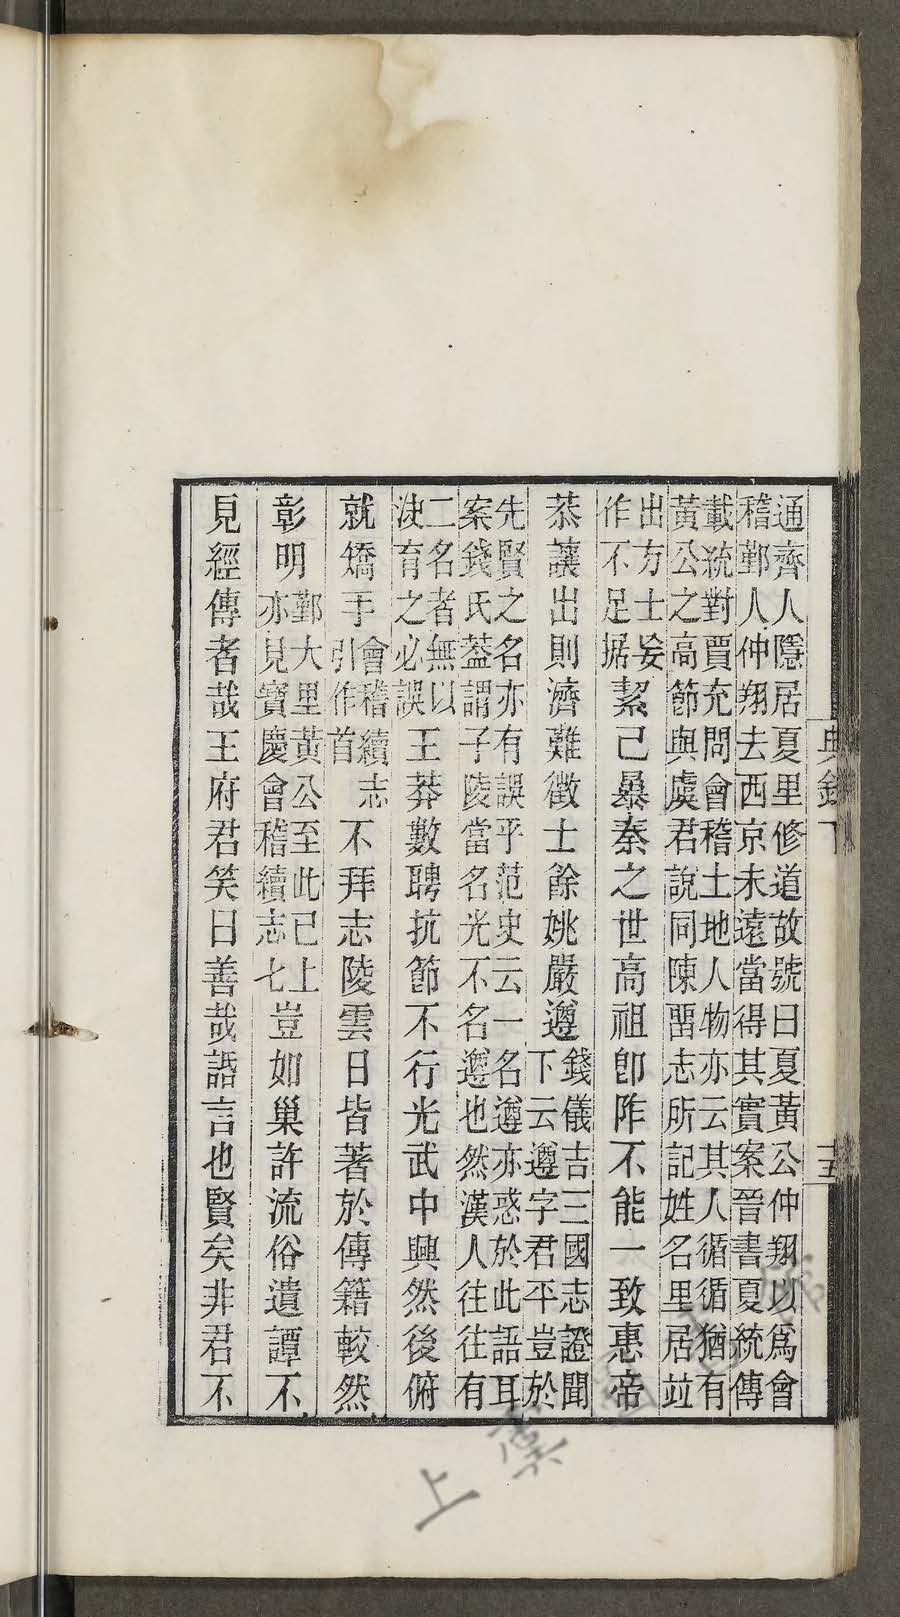 典錄下
十五
通齊人隱居夏里修道故號曰夏黃公仲翔以爲會
稽鄞人仲翔去西京未遠當得其實案晉書夏統傳
載統對賈充問會稽土地人物亦云其人循循猶有
黃公之高節與虞君說同陳畱志所記姓名里居竝
出方士妄
作不足据
絜己暴秦之世高祖卽阼不能一致惠帝
恭讓出則濟難徵士餘姚嚴遵
錢儀吉三國志證聞
下云遵字君平豈於
先賢之名亦有誤乎范史云一名遵亦惑於此語耳
案錢氏葢謂子陵當名光不名遵也然漢人往往有
二名者無以
決育之必誤
王莽數聘抗節不行光武中興然後俯
就矯手
會稽續志
引作首
不拜志陵雲日皆著於傳籍較然
彰明
鄞大里黃公至此已上
亦見寶慶會稽續志七
豈如巢許流俗遺譚不
見經傳者哉王府君笑曰善哉話言也賢矣非君不
上虞